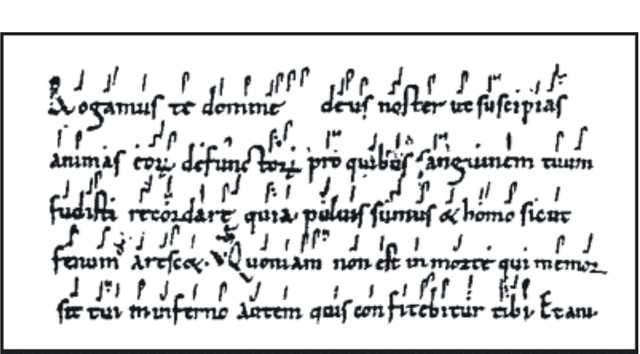 Rogamus te domine deus noster ut suscipias
animas eorꝝ defunctorꝝ pro quibus sanguinem tuum
fudisti recordare quia puluis sumus & homo sicut
fenum Quoniam non est in morte qui memor
sit tui in inferno autem quis confitebitur tibi Et